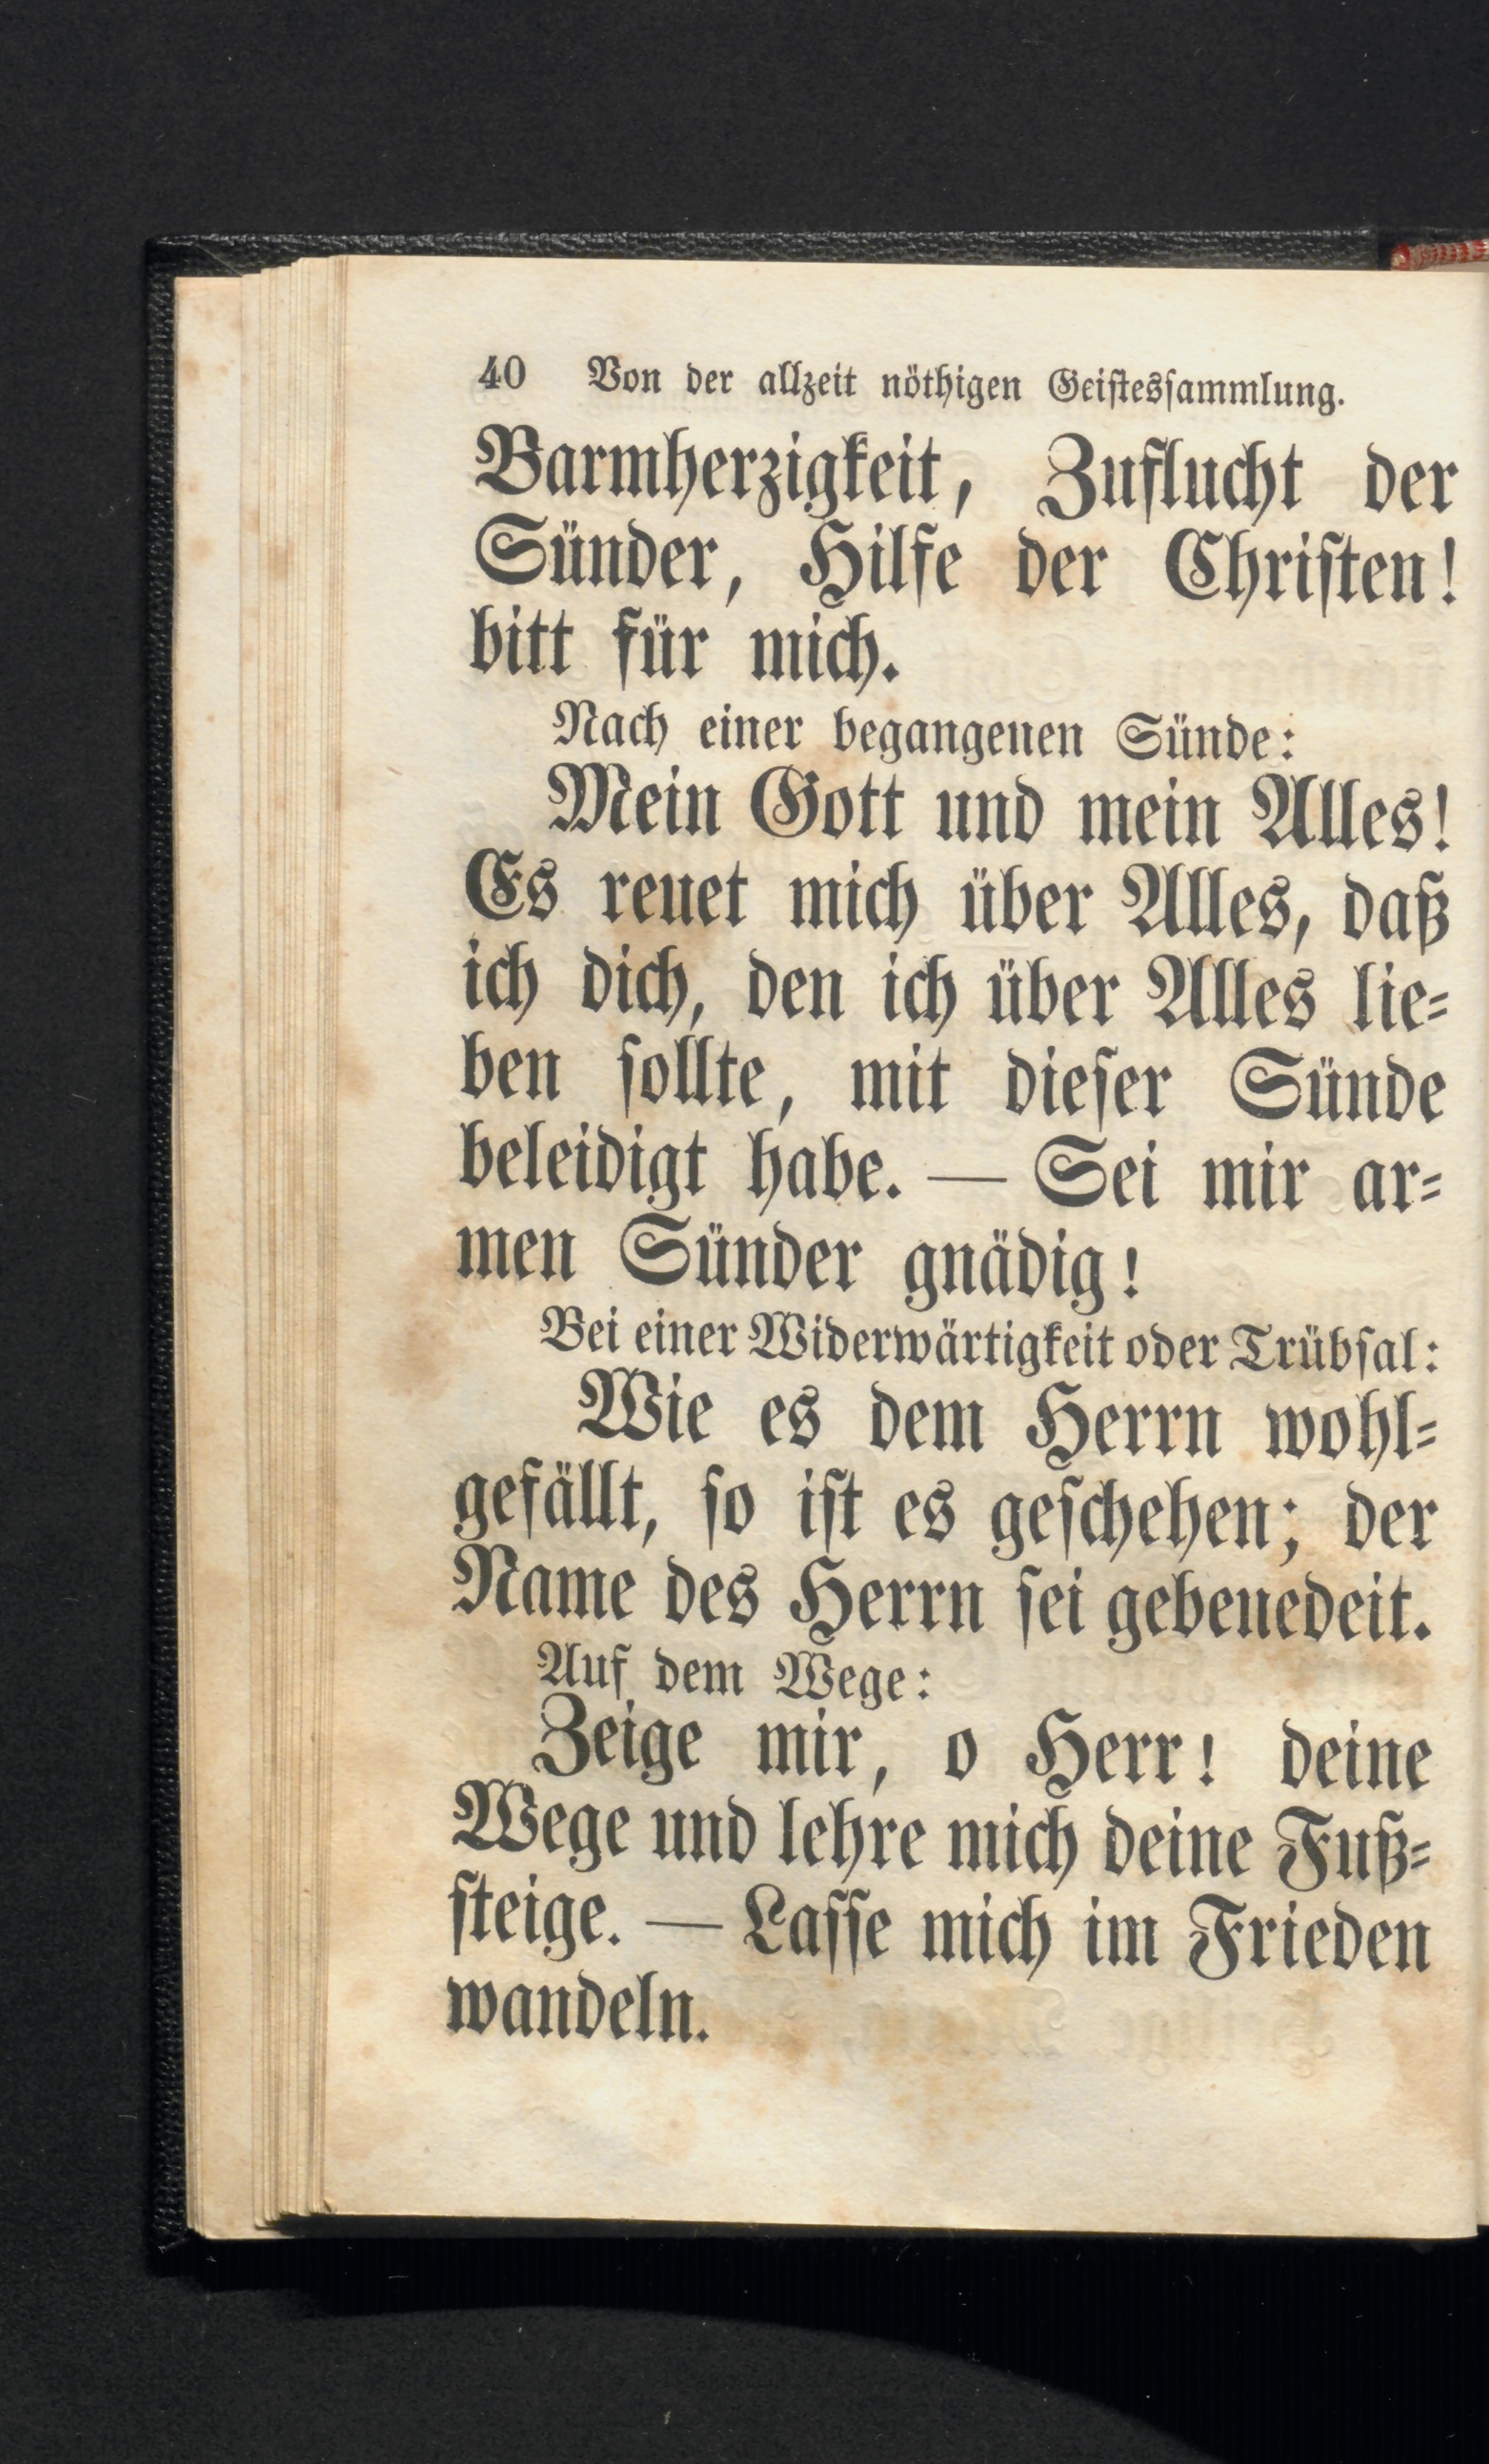 40 Von der allzeit nöthigen Geiſtesſammlung.
Barmherzigkeit, Zuflucht der
Sünder, Hilfe der Chriſten!
bitt für mich.
Nach einer begangenen Sünde:
Mein Gott und mein Alles!
Es reuet mich über Alles, daß
ich dich, den ich über Alles lie⸗
ben ſollte, mit dieſer Sünde
beleidigt habe. — Sei mir ar⸗
men Sünder gnädig!
Bei einer Widerwärtigkeit oder Trübſal:
Wie es dem Herrn wohl⸗
gefällt, ſo iſt es geſchehen; der
Name des Herrn ſei gebenedeit.
Auf dem Wege:
Zeige mir, o Herr! deine
Wege und lehre mich deine Fuß⸗
ſteige. — Laſſe mich im Frieden
wandeln.